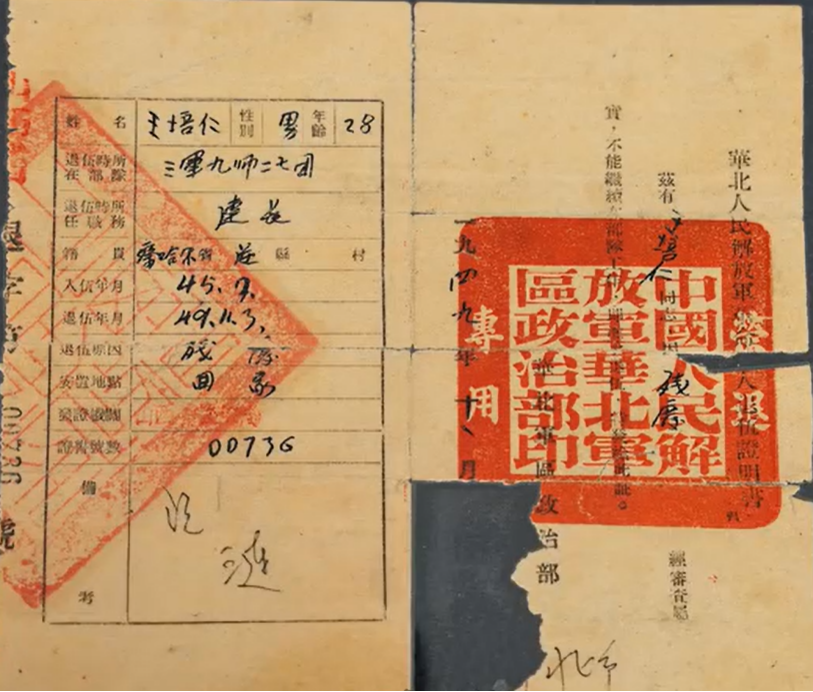 姓名 王培仁 性別 男 年齡 28
退伍時所在部隊 三軍九師二七团
退伍時所任職務 連長
籍貫 察哈尔省 縣 村
入伍年月 45.7.
退伍年月 49.11.3.
退伍原因 残废
安置地點 回家
發證機關
證書號數 00736
備考
00736 號
華北人民解放軍 退伍證明書
茲有 王培仁 同志因 残廢 經審查屬
實,不能繼續在部隊工作
華北軍區政治部
一九四九年十 月
中國人民解
放軍華北軍
區政治部印
榮退
專用